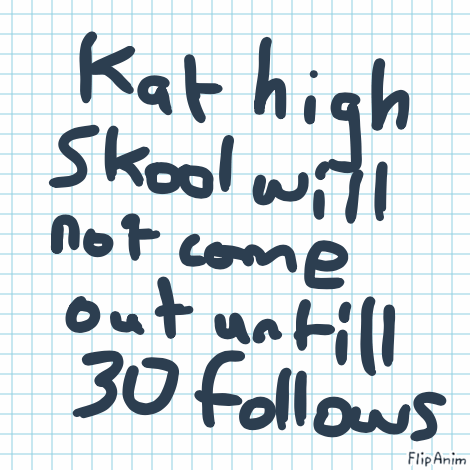 Kat high
Skool will
not come
out untill
30 follows
FlipAnim